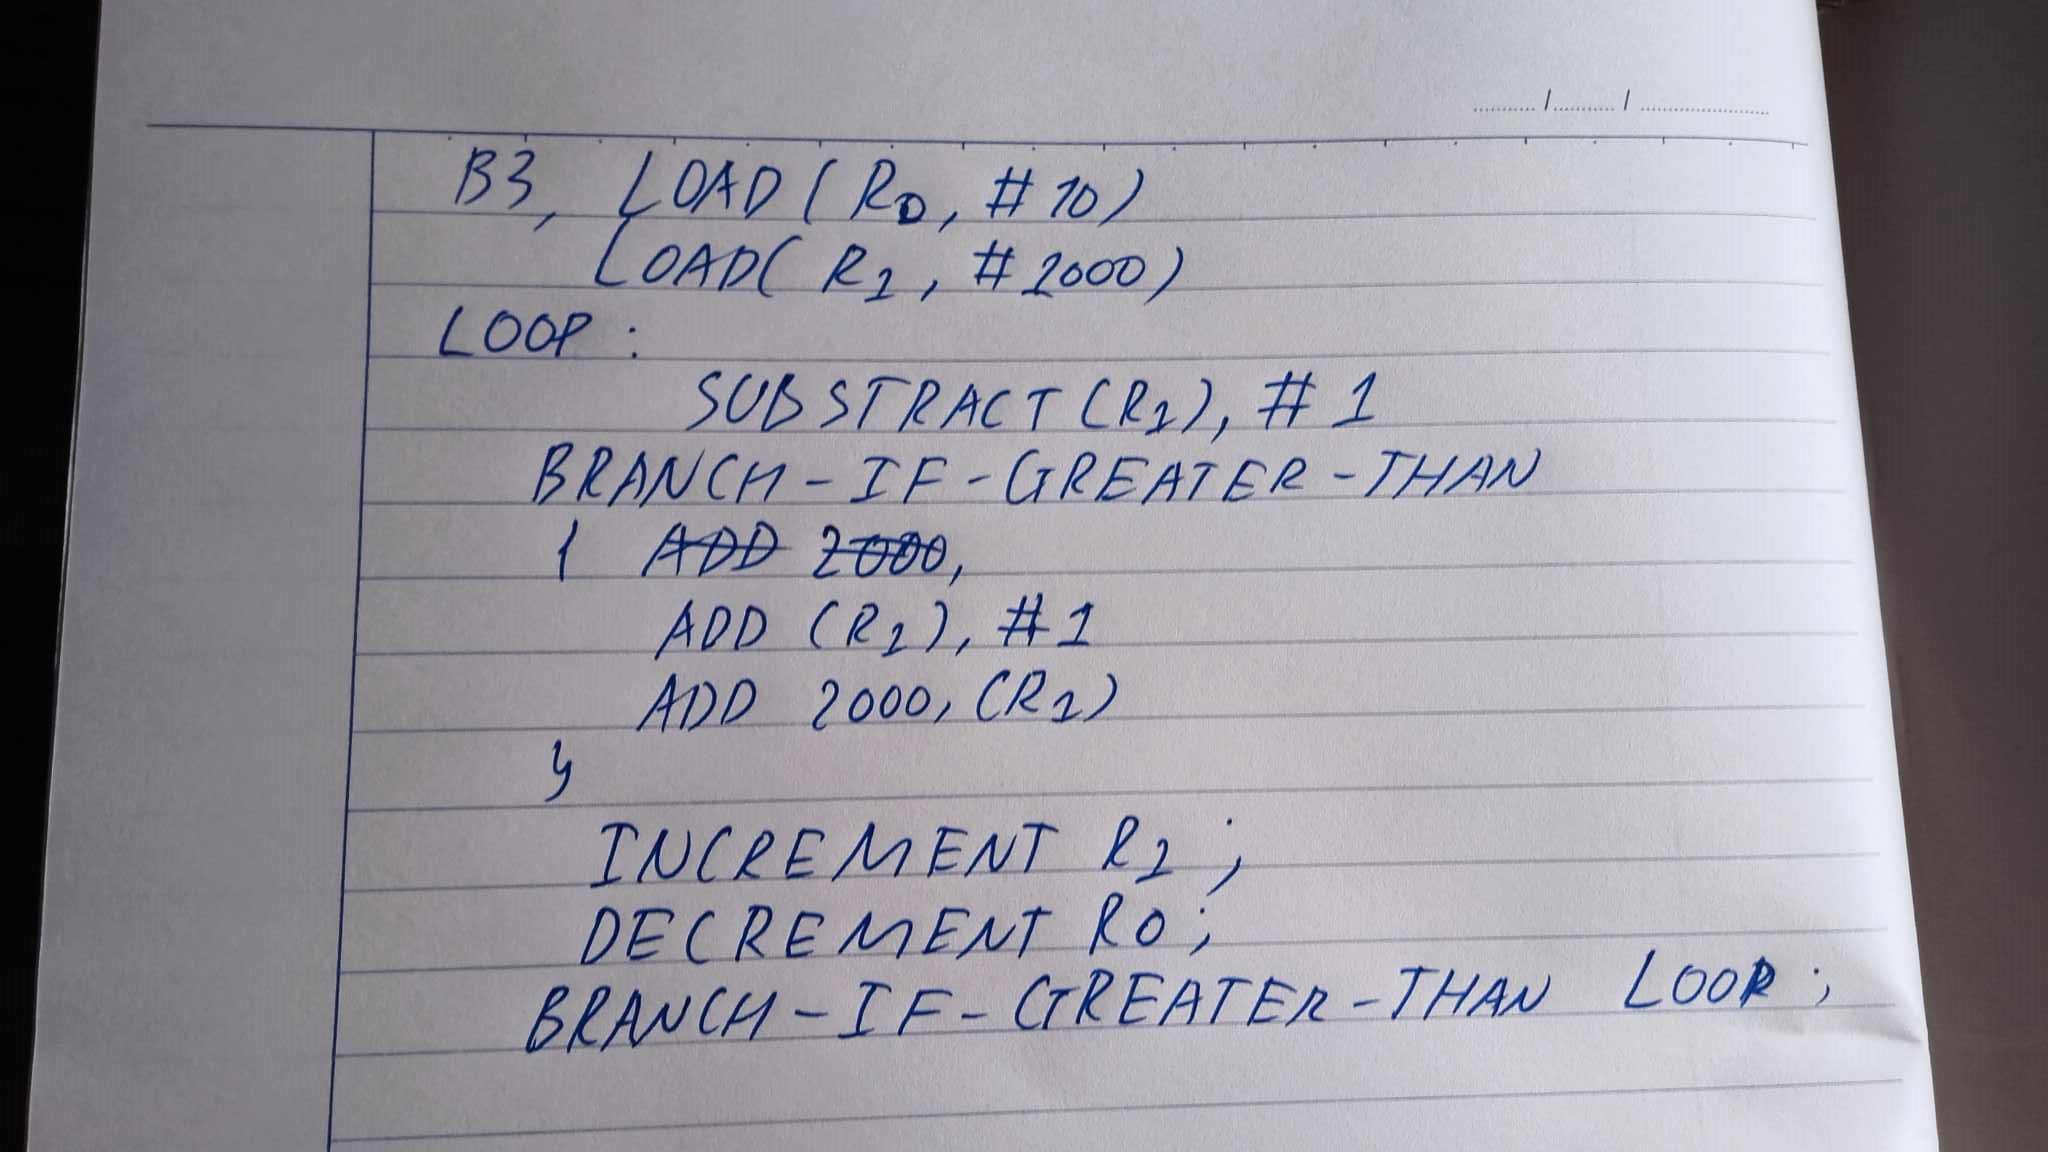 B3, LOAD (R0, #10)
LOAD( R1, #1000)
LOOP :
SUBSTRACT (R1), #1
BRANCH-IF-GREATER-THAN
{ ADD 2000,
ADD (R1), #1
ADD 2000, (R1)
}
INCREMENT R1 ;
DECREMENT R0 ;
BRANCH-IF-GREATER-THAN LOOP ;